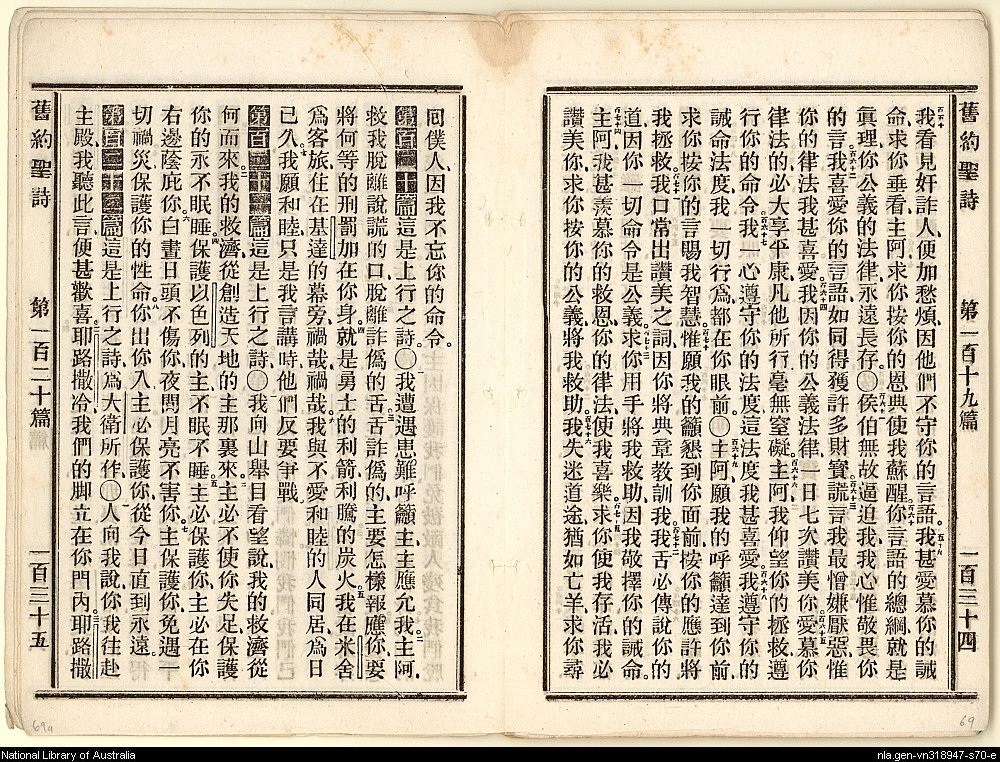 舊約聖詩 第一百十九篇 一百三十四
我看見奸詐人便加愁煩因他們不守你的言語我甚愛慕你的誡
命求你垂看主阿求你按你的恩典使我蘇醒你言語的總綱就是
眞理你公義的法律永遠長存○侯伯無故逼迫我我心惟敬畏你
的言我喜愛你的言語如同得獲許多財寶謊言我最憎嫌厭惡惟
你的律法我甚喜愛我因你的公義法律一日七次讚美你愛慕你
律法的必大享平康凡他所行毫無窒礙主阿我仰望你的拯救遵
行你的命令我一心遵守你的法度這法度我甚喜愛我遵守你的
誡命法度我一切行爲都在你眼前○主阿願我的呼籲達到你前
求你按你的言賜我智慧惟願我的籲懇到你面前按你的應許將
我拯救我口常出讚美之詞因你將典章教訓我我舌必傳說你的
道因你一切命令是公義求你用手將我救助因我敬擇你的誡命
主阿我甚羨慕你的救恩你的律法使我喜樂求你使我存活我必
讚美你求你按你的公義將我救助我失迷道途猶如亡羊求你尋
舊約聖詩 第一百二十篇 一百三十五
回僕人因我不忘你的命令
第百二十篇這是上行之詩○我遭遇患難呼籲主主應允我主阿
救我脫離說謊的口脫離詐僞的舌舌詐僞的主要怎樣報應你要
將何等的刑罰加在你身就是勇士的利箭利騰的炭火我在米舍
爲客旅住在基達的幕旁禍哉禍哉我與不愛和睦的人同居爲日
已久我願和睦只是我言講時他們反要爭戰
第百二十一篇這是上行之詩○我向山舉目看望說我的救濟從
何而來我的救濟從創造天地的主那裏來主必不使你失足保護
你的永不眠睡保護以色列的主不眠不睡主必保護你主必在你
右邊蔭庇你白晝日頭不傷你夜間月亮不害你主保護你免遇一
切禍災保護你的性命你出你入主必保護你從今日直到永遠
第百二十二篇這是上行之詩爲大衛所作○人向我說你我往赴
主殿我聽此言便甚歡喜耶路撒冷我們的脚立在你門內耶路撒
69a
69
National Library of Australia
nla.gen-vn318947-s70-e